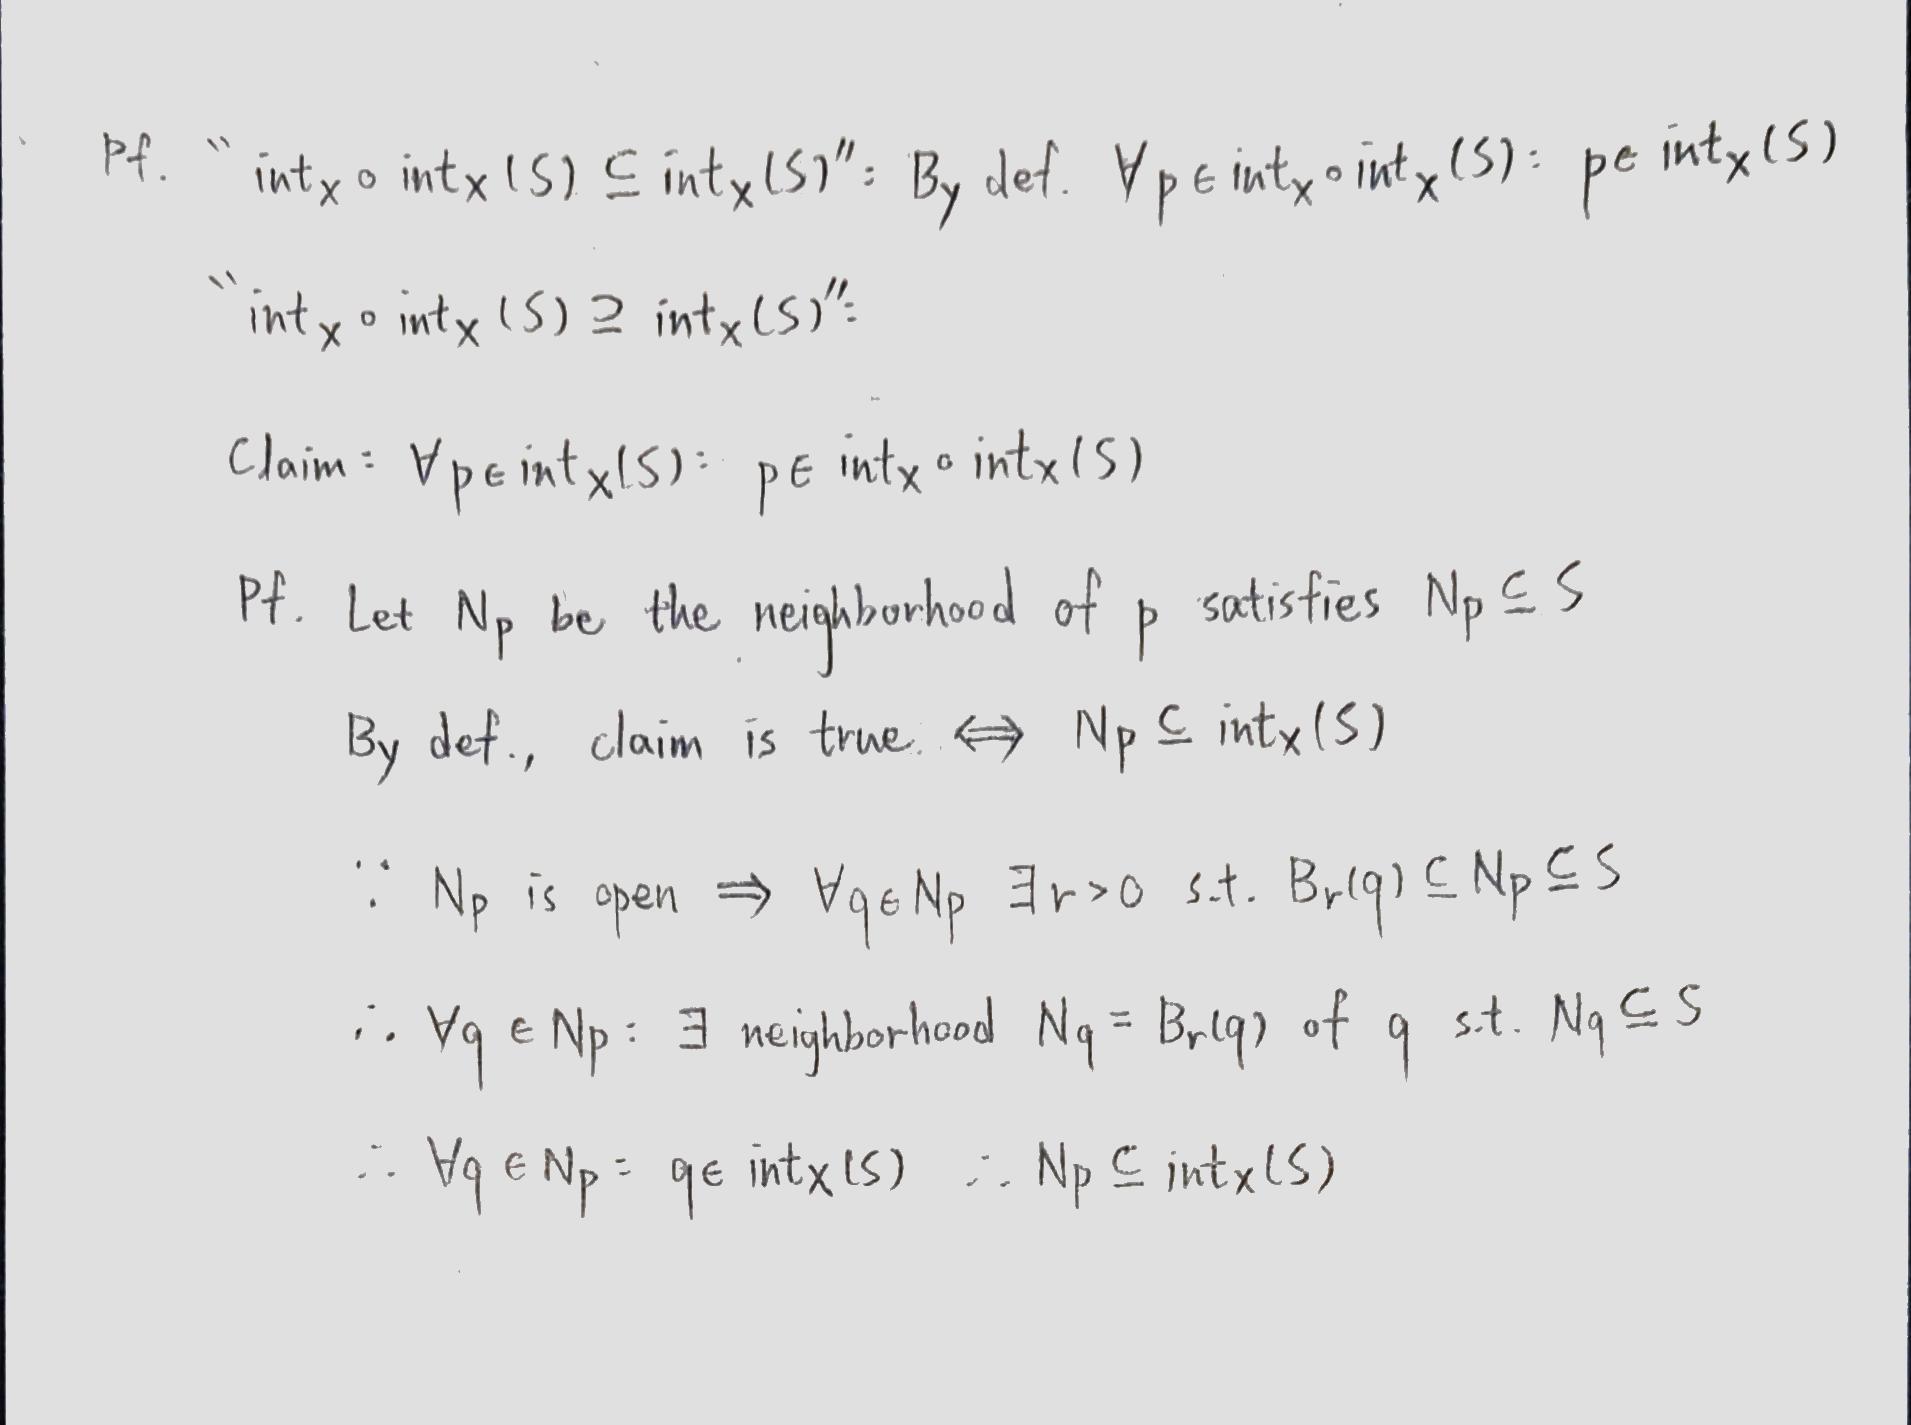 Pf. "int_X ∘ int_X (S) ⊆ int_X (S)": By def. ∀p ∈ int_X ∘ int_X (S): p ∈ int_X (S)
"int_X ∘ int_X (S) ⊇ int_X (S)":
Claim: ∀p ∈ int_X (S): p ∈ int_X ∘ int_X (S)
Pf. Let N_p be the neighborhood of p satisfies N_p ⊆ S
By def., claim is true. ⇔ N_p ⊆ int_X (S)
∵ N_p is open ⇒ ∀q ∈ N_p ∃r>0 s.t. B_r(q) ⊆ N_p ⊆ S
∴ ∀q ∈ N_p: ∃ neighborhood N_q = B_r(q) of q s.t. N_q ⊆ S
∴ ∀q ∈ N_p: q ∈ int_X (S) ∴ N_p ⊆ int_X (S)